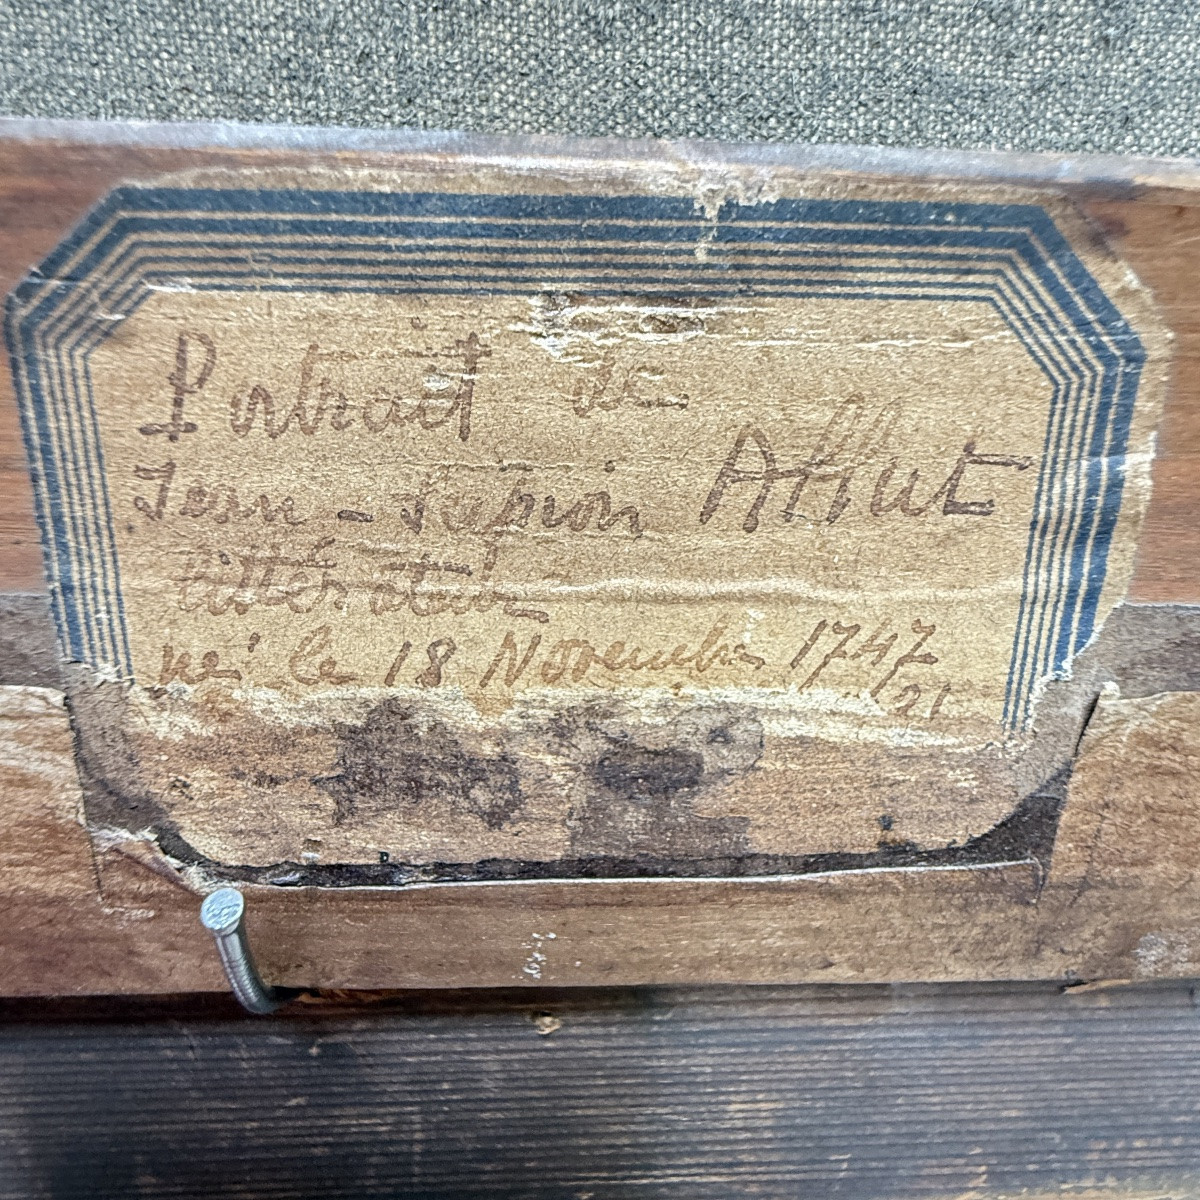 Portrait de
Jean - Scipion Affut
Littérateur
né le 18 Novembre 1747